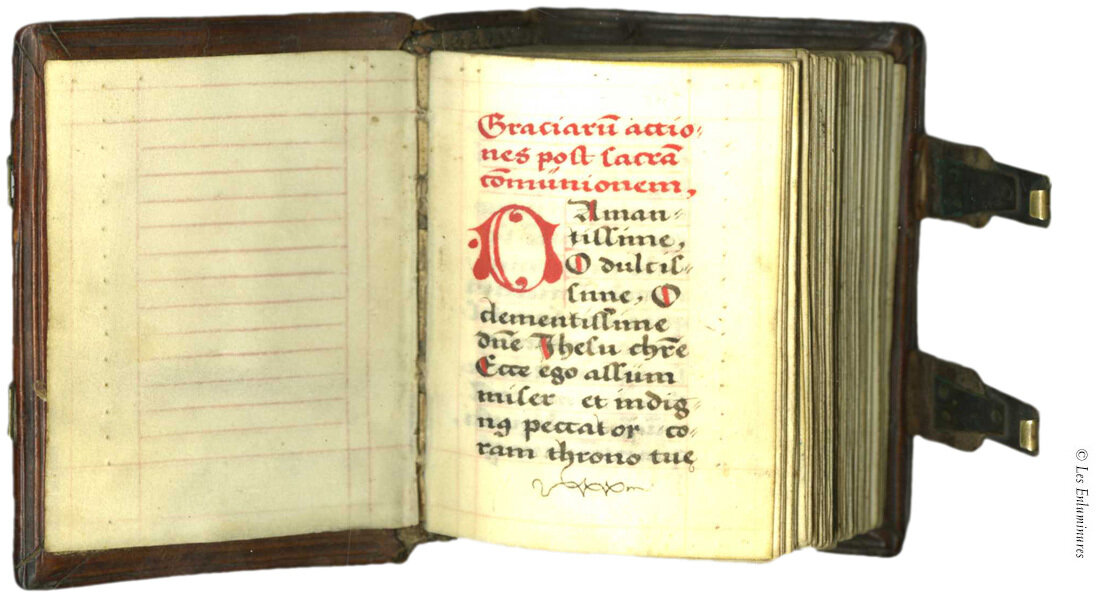 Graciarū actio⸗
nes post sacrā
cōmunionem,
O Aman⸗
tissime,
O dulcis⸗
sime, O
clementissime
dn̄e Jhesu chr̄e
Ecce ego assum
miser et indig⸗
nꝯ peccator co⸗
ram throno tuę
© Les Enluminures